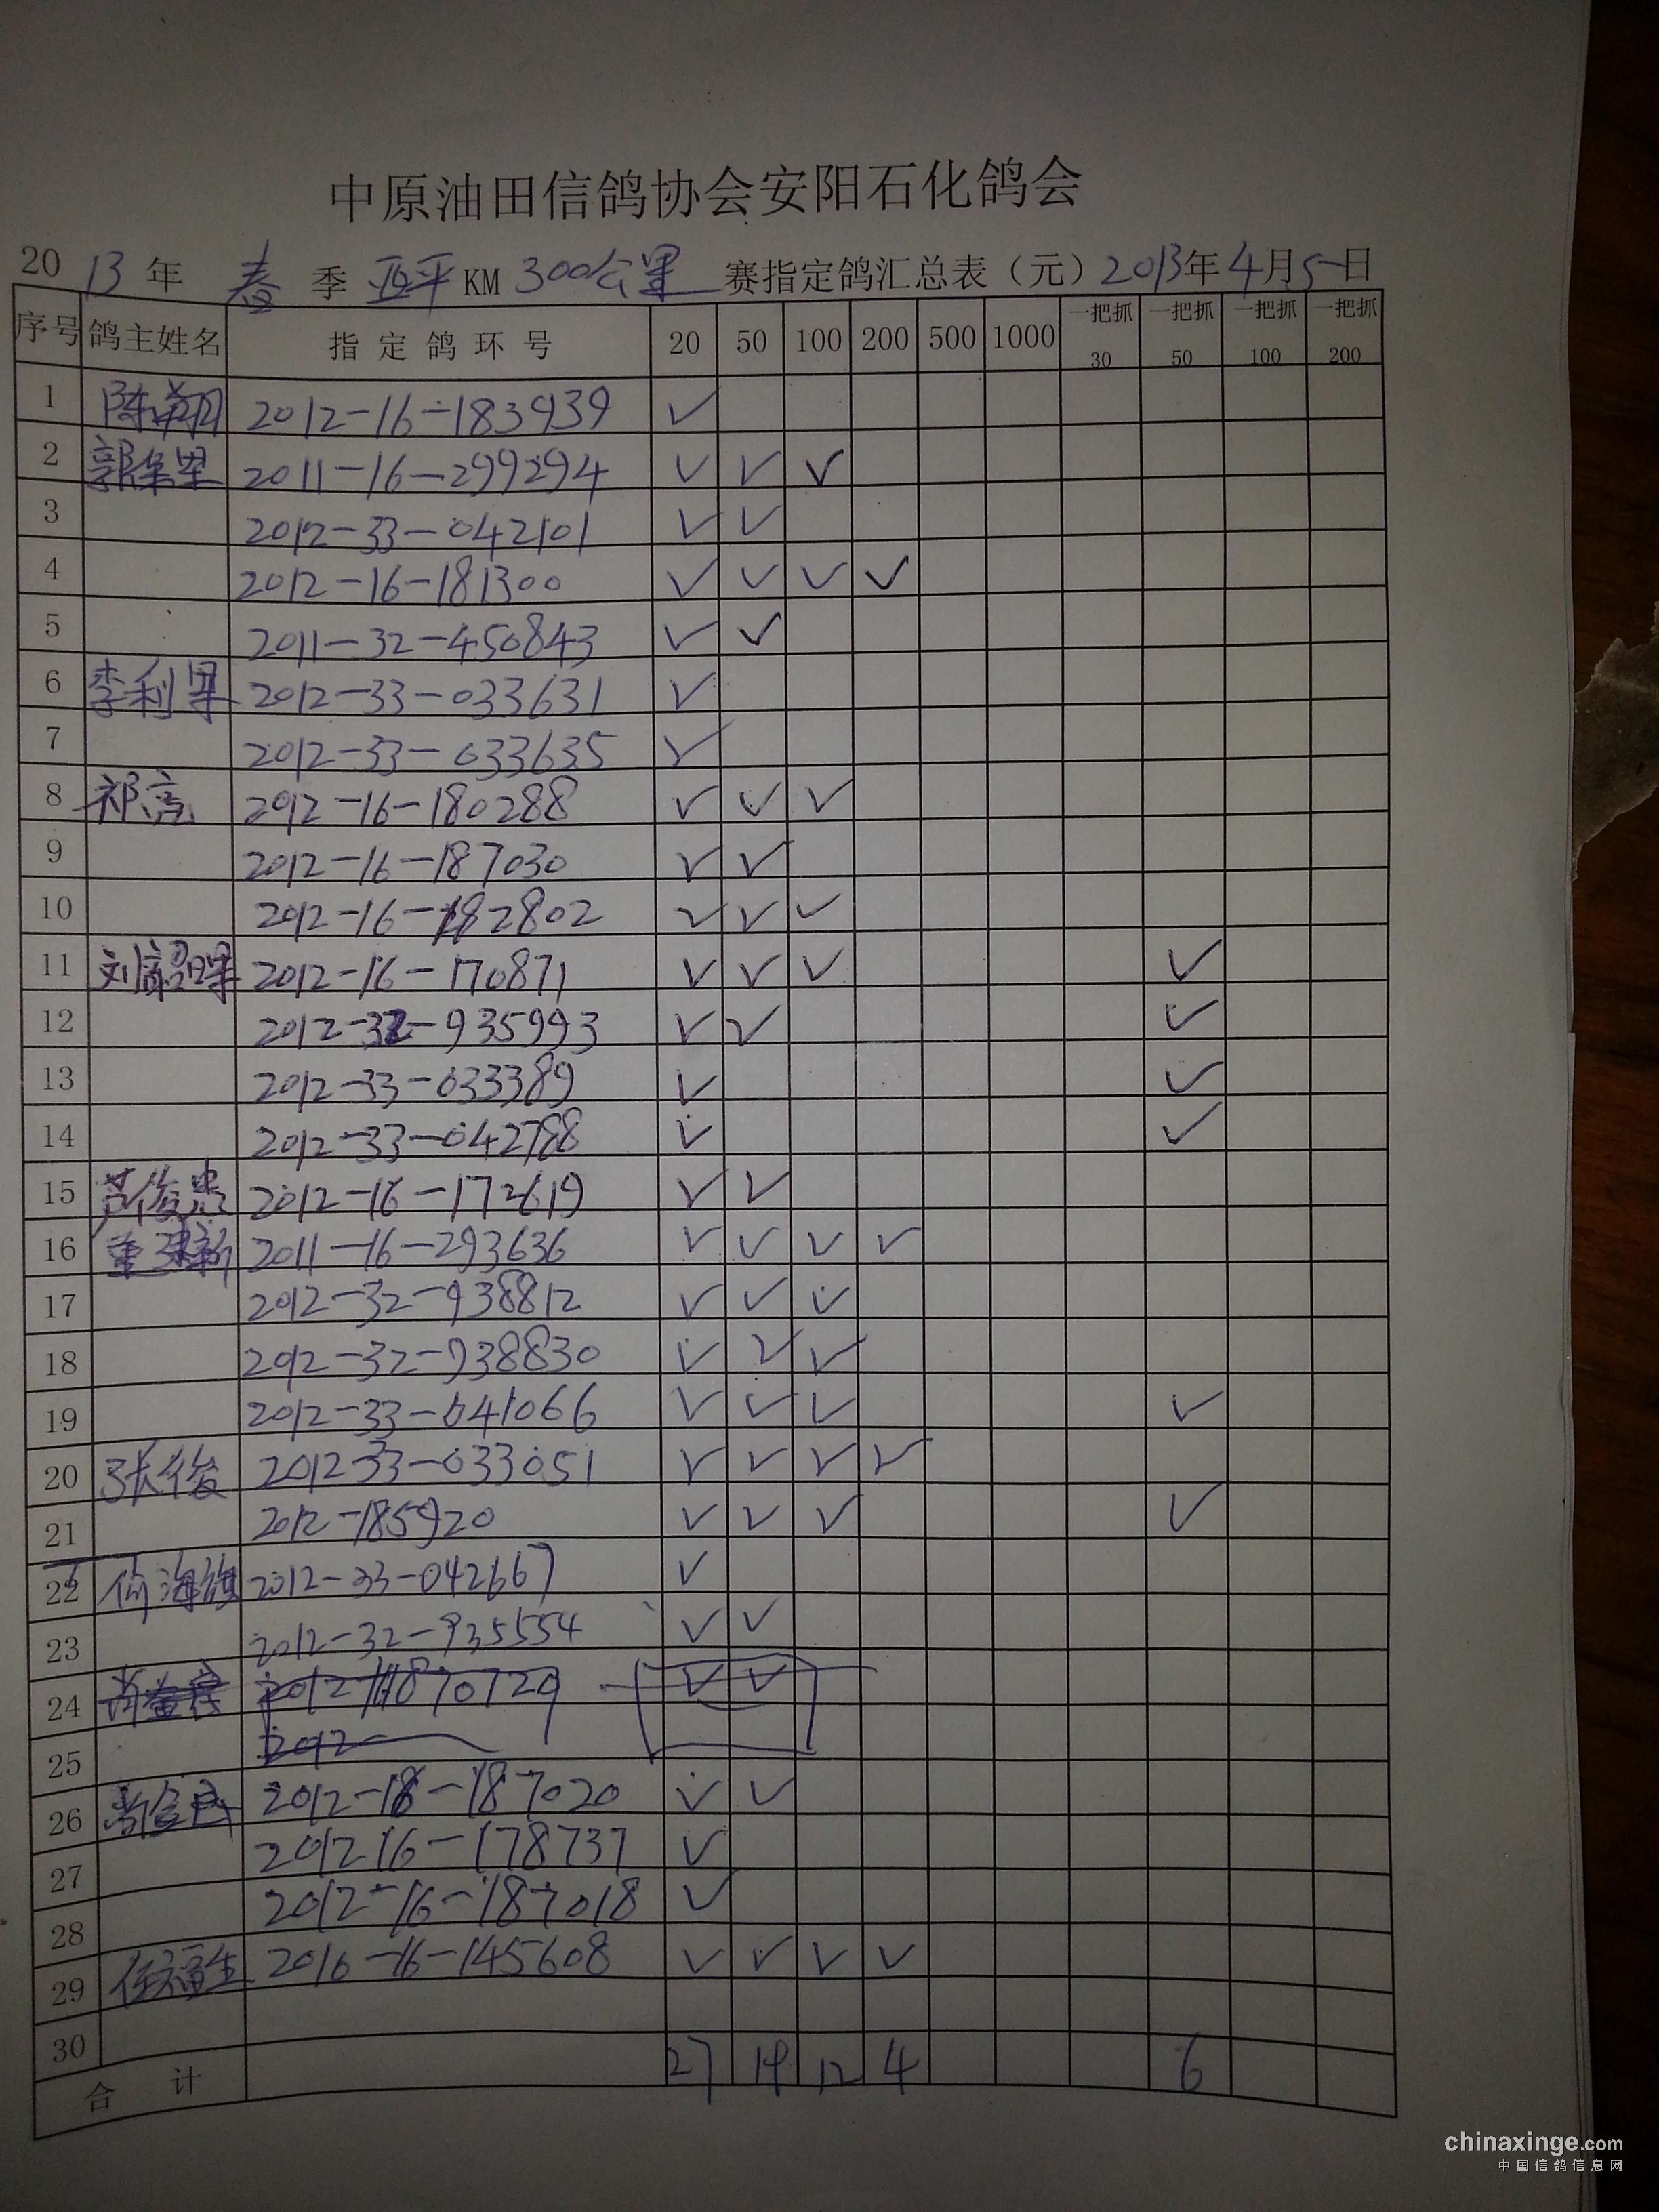 中原油田信鸽协会安阳石化鸽会
2013年 春 季 亚平 KM 300公里 赛指定鸽汇总表（元）2013年4月5日
序号 鸽主姓名 指定鸽环号 20 50 100 200 500 1000 一把抓30 一把抓50 一把抓100 一把抓200
1 2012-16-183939 ✓
2 2011-16-299294 ✓ ✓ ✓
3 2012-33-042101 ✓ ✓
4 2012-16-181300 ✓ ✓ ✓ ✓
5 2011-32-450843 ✓ ✓
6 李利 2012-33-033631 ✓
7 2012-33-033635 ✓
8 祁亮 2012-16-180288 ✓ ✓ ✓
9 2012-16-187030 ✓ ✓
10 2012-16-182802 ✓ ✓ ✓
11 2012-16-170871 ✓ ✓ ✓ ✓
12 2012-32-935993 ✓ ✓ ✓
13 2012-33-033389 ✓ ✓
14 2012-33-042788 ✓ ✓
15 芦俊忠 2012-16-172619 ✓ ✓
16 2011-16-293636 ✓ ✓ ✓ ✓
17 2012-32-938812 ✓ ✓ ✓
18 2012-32-938830 ✓ ✓ ✓
19 2012-33-041066 ✓ ✓ ✓ ✓
20 张俊 2012-33-033051 ✓ ✓ ✓ ✓
21 2012-185920 ✓ ✓ ✓ ✓
22 海 2012-33-042667 ✓
23 2012-32-935554 ✓ ✓
24 ✓ ✓
25 2012
26 2012-16-187020 ✓ ✓
27 201216-178737 ✓
28 2012-16-187018 ✓
29 任福生 2010-16-145608 ✓ ✓ ✓ ✓
30
合计 27 19 12 4 6
chinaxinge.com
中国信鸽信息网